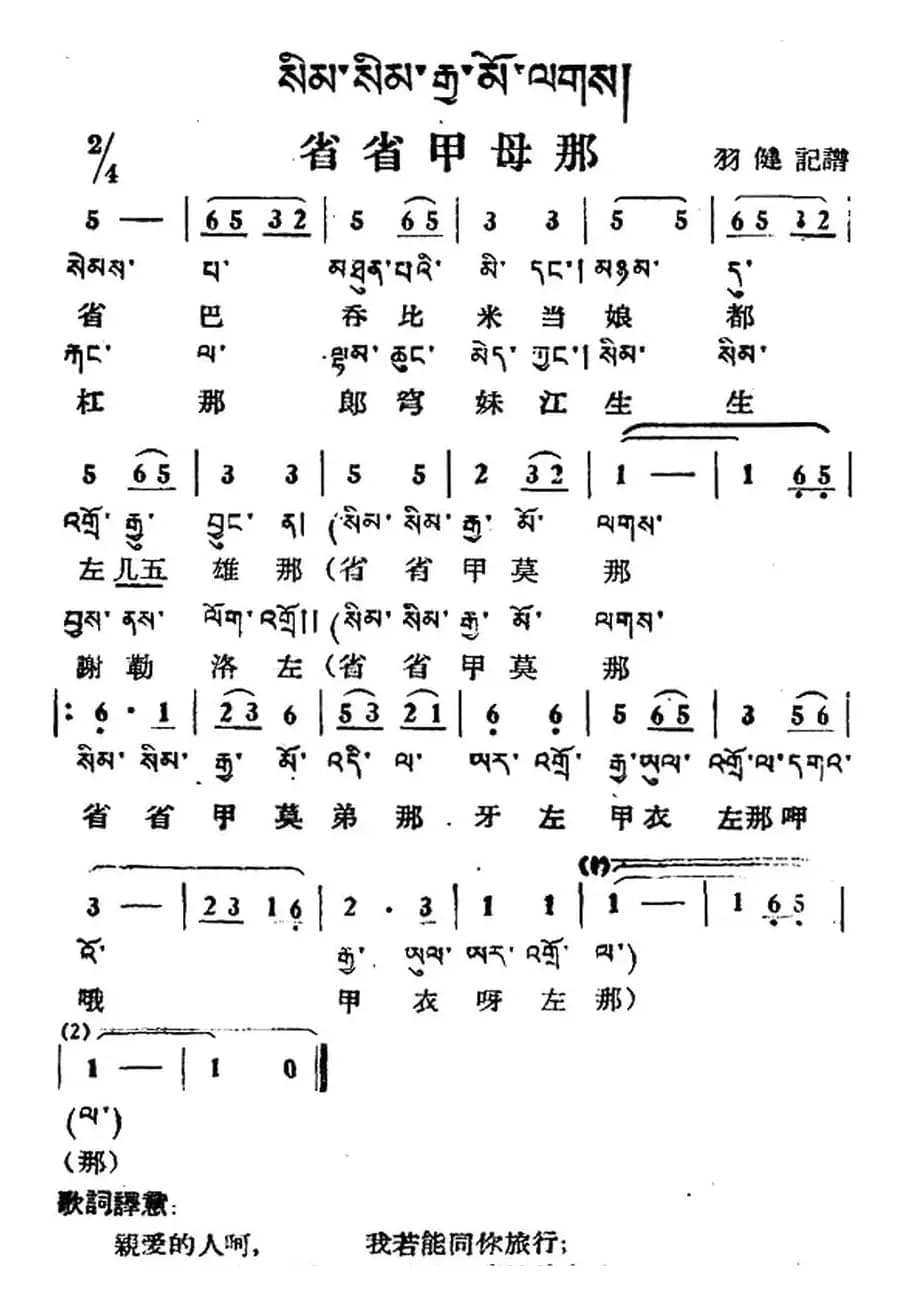 སིམ་སིམ་རྒྱ་མོ་ལགས།
2/4 省省甲母那 羽健記譜
5 — | 6 5 3 2 | 5 6 5 | 3 3 | 5 5 | 6 5 3 2 |
སེམས་ པ་ མཐུན་པའི་ མི་ དང་། མཉམ་ དུ་
省 巴 吞 比 米 当 娘 都
རྐང་ ལ་ ལྷམ་ ཆུང་ མེད་ ཀྱང་། སིམ་ སིམ་
杠 那 郎 穹 妹 江 生 生
5 6 5 | 3 3 | 5 5 | 2 3 2 | 1 — | 1 6 5 |
འགྲོ་ རྒྱུ་ བྱུང་ ན། (སིམ་ སིམ་ རྒྱ་ མོ་ ལགས་
左 几五 雄 那 (省 省 甲 莫 那
བྱས་ ནས་ ལོག་ འགྲོ།། (སིམ་ སིམ་ རྒྱ་ མོ་ ལགས་
謝 勒 洛 左 (省 省 甲 莫 那
|: 6 · 1 | 2 3 6 | 5 3 2 1 | 6 6 | 5 6 5 | 3 5 6 |
སིམ་ སིམ་ རྒྱ་ མོ་ འདི་ ལ་ ཨར་ འགྲོ་ རྒྱ་ཨུལ་ འགྲོ་ལ་དགའ་
省 省 甲 莫 弟 那 牙 左 甲 衣 左 那 呷
3 — | 2 3 1 6 | 2 · 3 | 1 1 | (1) 1 — | 1 6 5 |
འོ་ རྒྱ་ ཨུལ་ ཨར་ འགྲོ་ ལ་)
哦 甲 衣 呀 左 那)
(2) | 1 — | 1 0 ‖
(ལ་)
(那)
歌詞譯意:
親爱的人啊, 我若能同你旅行;